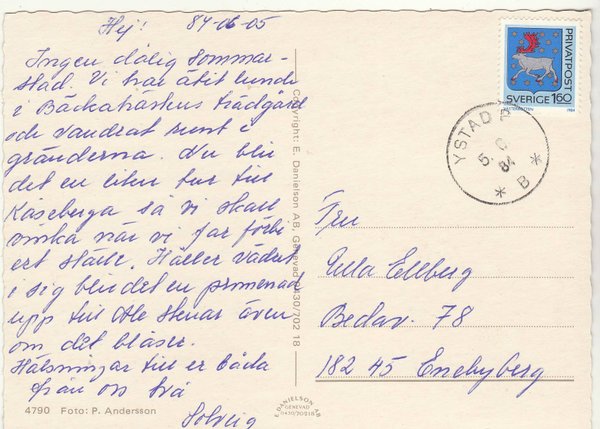 Hej! 84-06-05
Ingen dålig sommar-
stad. Vi har ätit lunch
i Bäckahästens trädgård
och vandrat runt i
gränderna. Nu blir
det en liten tur till
Kåseberga så vi skall
vinka när vi far förbi
ert ställe. Håller vädret
i sig blir det en promenad
upp till Ale Stenar även
om det blåser.
Hälsningar till er båda
från oss två
Solveig
4790 Foto: P. Andersson
Copyright: E. Danielson AB, Genevad 0430/702 18
E. DANIELSON AB
GENEVAD
0430/70218
PRIVATPOST
SVERIGE 160
VÄSTERBOTTEN 1984
YSTAD P
5. 6
84
* B *
Fru
Ulla Ellberg
Bedav. 78
182 45 Enebyberg